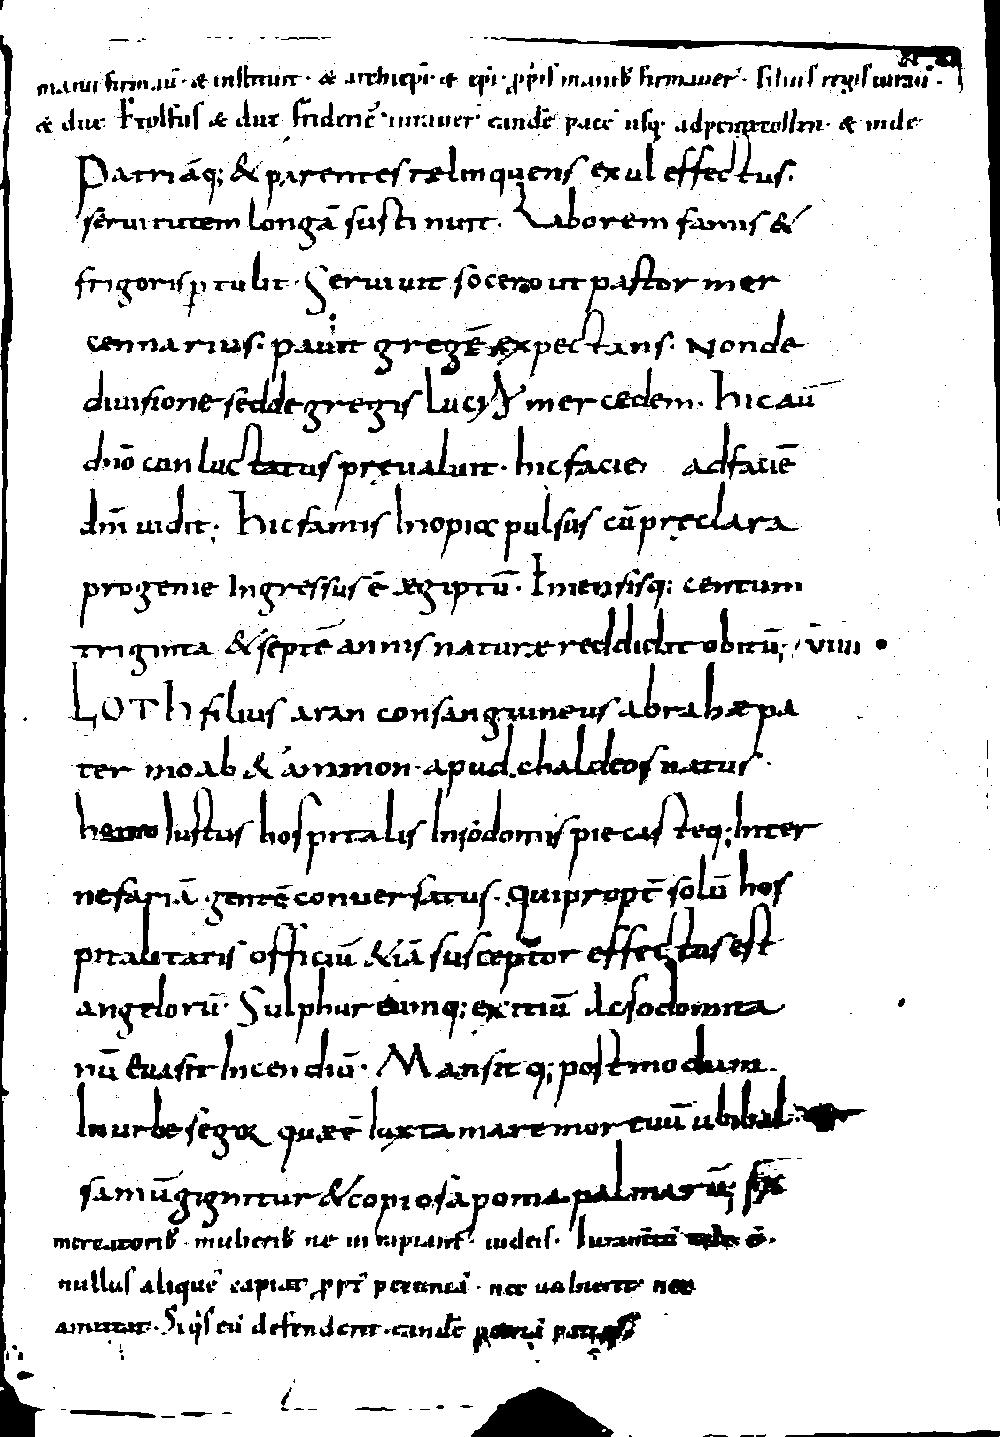 manu firmaũ· & instituit· & archiepĩ· & epĩ· ꝓpiis manib᷒ firmauer̃· filius regis iurauĩ·
& dux & dux frideric᷒ iurauer̃ eandẽ pacẽ usq; ad & inde
Patriãq; & parentes relinquens exul effectus.
seruitutem longã sustinuit· Laborem famis &
frigoris ꝑtulit· Seruiuit socero ut pastor mer
cennarius· pauit gregẽ expectans· Nonde
diuisione sed de gregis mercedem· hic aũ
dnõ conluctatus preualuit· hic facie ad faciẽ
dnĩ uidit; hic famis Inopiæ pulsus cũ preclara
progenie Ingressus ẽ ægiptũ· Imensisq; centum
triginta & septẽ annis naturæ reddidit obitũ; uiiii
LOTH filius aran consanguineus abrahæ pa
ter moab & ammon· apud chaldeos natus·
homo Iustus hospitalis In sodomis pie casteq; Inter
nefariã gentẽ conuersatus· Qui propt̃ solũ hos
pitalitatis officiũ & iã susceptor effectus est
angelorũ· Sulphureumq; exitiũ ac sodomita
nũ euasit Incendiũ· Mansitq; postmodum
In urbe segor quæ ẽ Iuxta mare mortuũ ubi bal
samũ gignitur & copiosa poma palmarũ;
mercatorib᷒ mulierib᷒ ne iudeis·
nullus aliquẽ capiat ꝓpt̃ pecuniã· nec
amittat· Siq̃s eũ defenderit· eandẽ